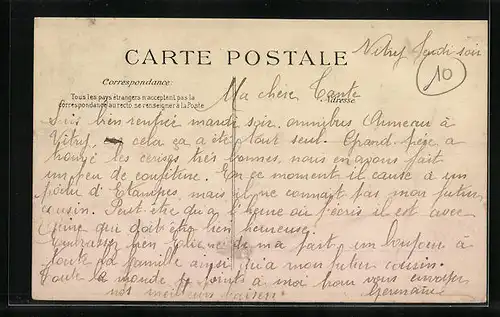 CARTE POSTALE
Vitry Jeudi soir
10
Correspondance:
Tous les pays étrangers n'acceptent pas la
correspondance au recto, se renseigner à la Poste
Adresse
Ma chère Tante
Suis bien rentrée mardi soir omnibus Auneau à
Vitry, cela ça a été tout seul. Grand-père a
trouvé les cerises très bonnes, nous en avons fait
un peu de confiture. En ce moment il cause à un
d'Etampes, mais il ne connait pas mon futur
cousin. Peut-être qu'à l'heure où j'écris il est avec
qui doit être bien heureuse.
Embrasse bien de ma part, un bonjour à
toute sa famille ainsi qu'à mon futur cousin.
Toute le monde se joint à moi pour vous envoyer
nos meilleurs baisers. Germaine